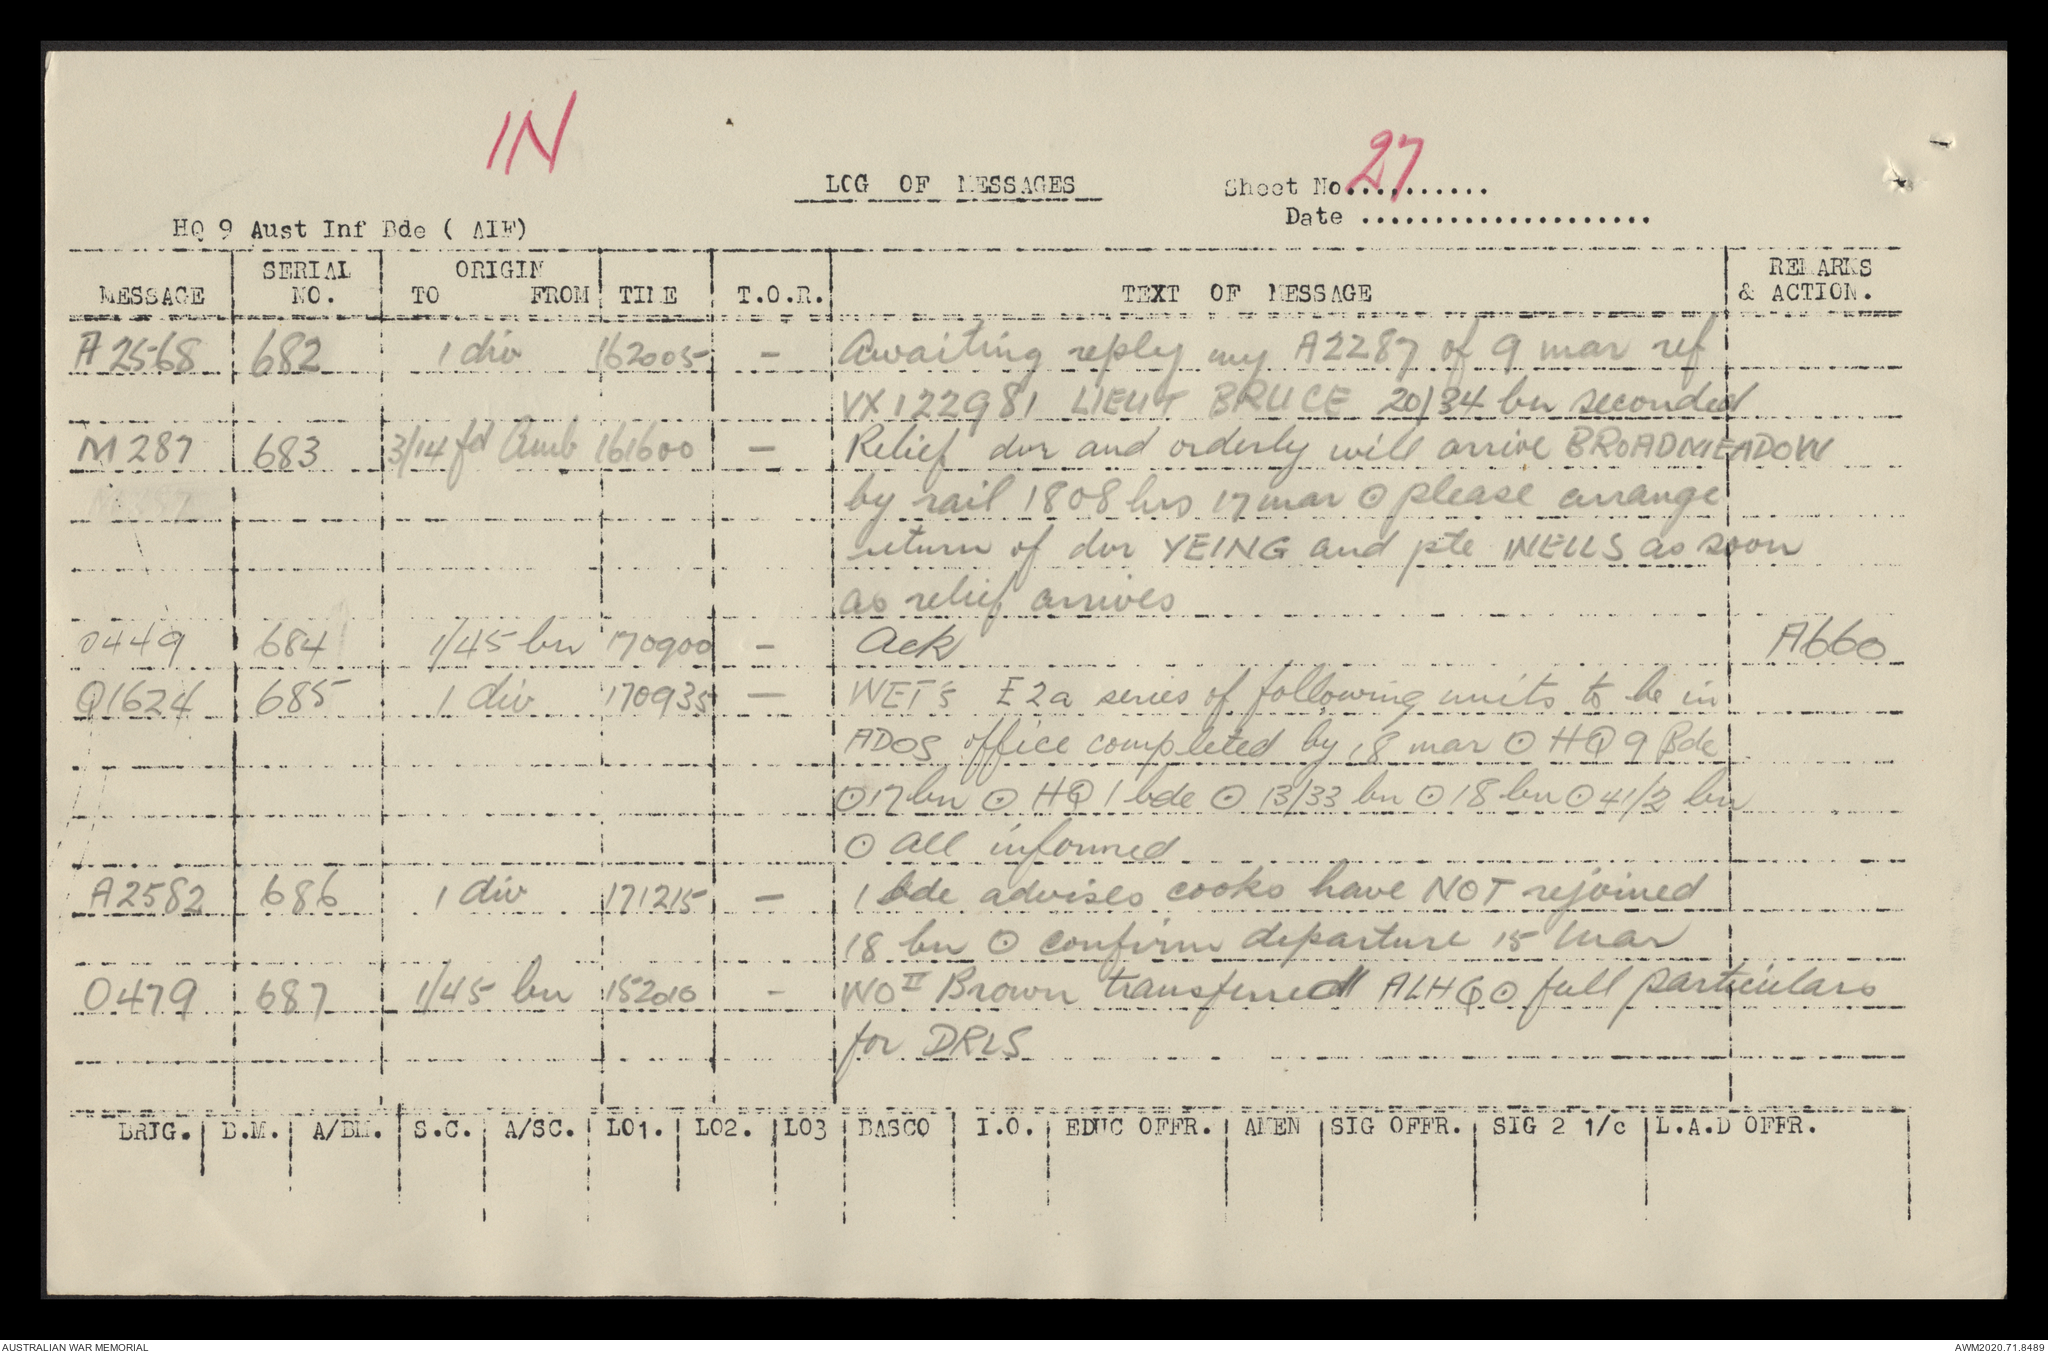 IN
LOG OF MESSAGES
Sheet No.27.........
Date ....................
HQ 9 Aust Inf Bde ( AIF)
MESSAGE SERIAL NO. ORIGIN TO FROM TIME T.O.R. TEXT OF MESSAGE REMARKS & ACTION.
A2568 682 1 div 162005 - Awaiting reply my A2287 of 9 mar ref
VX122981 LIEUT BRUCE 20/34 bn seconded
M287 683 3/14 fd Amb 161600 - Relief dvr and orderly will arrive BROADMEADOW
by rail 1808 hrs 17 mar ⊙ please arrange
return of dvr YEING and pte WELLS as soon
as relief arrives
0449 684 1/45 bn 170900 - Ack A660
Q1624 685 1 div 170935 - WET's E2a series of following units to be in
ADOS office completed by 18 mar ⊙ HQ 9 Bde
⊙ 17 bn ⊙ HQ 1 bde ⊙ 13/33 bn ⊙ 18 bn ⊙ 41/2 bn
⊙ all informed
A2582 686 1 div 171215 - 1 bde advises cooks have NOT rejoined
18 bn ⊙ confirm departure 15 mar
O479 687 1/45 bn 152010 - WO II Brown transferred ALHQ ⊙ full particulars
for DRLS
BRIG. B.M. A/BM. S.C. A/SC. LO1. LO2. LO3 BASCO I.O. EDUC OFFR. AMEN SIG OFFR. SIG 2 1/c L.A.D OFFR.
AUSTRALIAN WAR MEMORIAL
AWM2020.71.8489